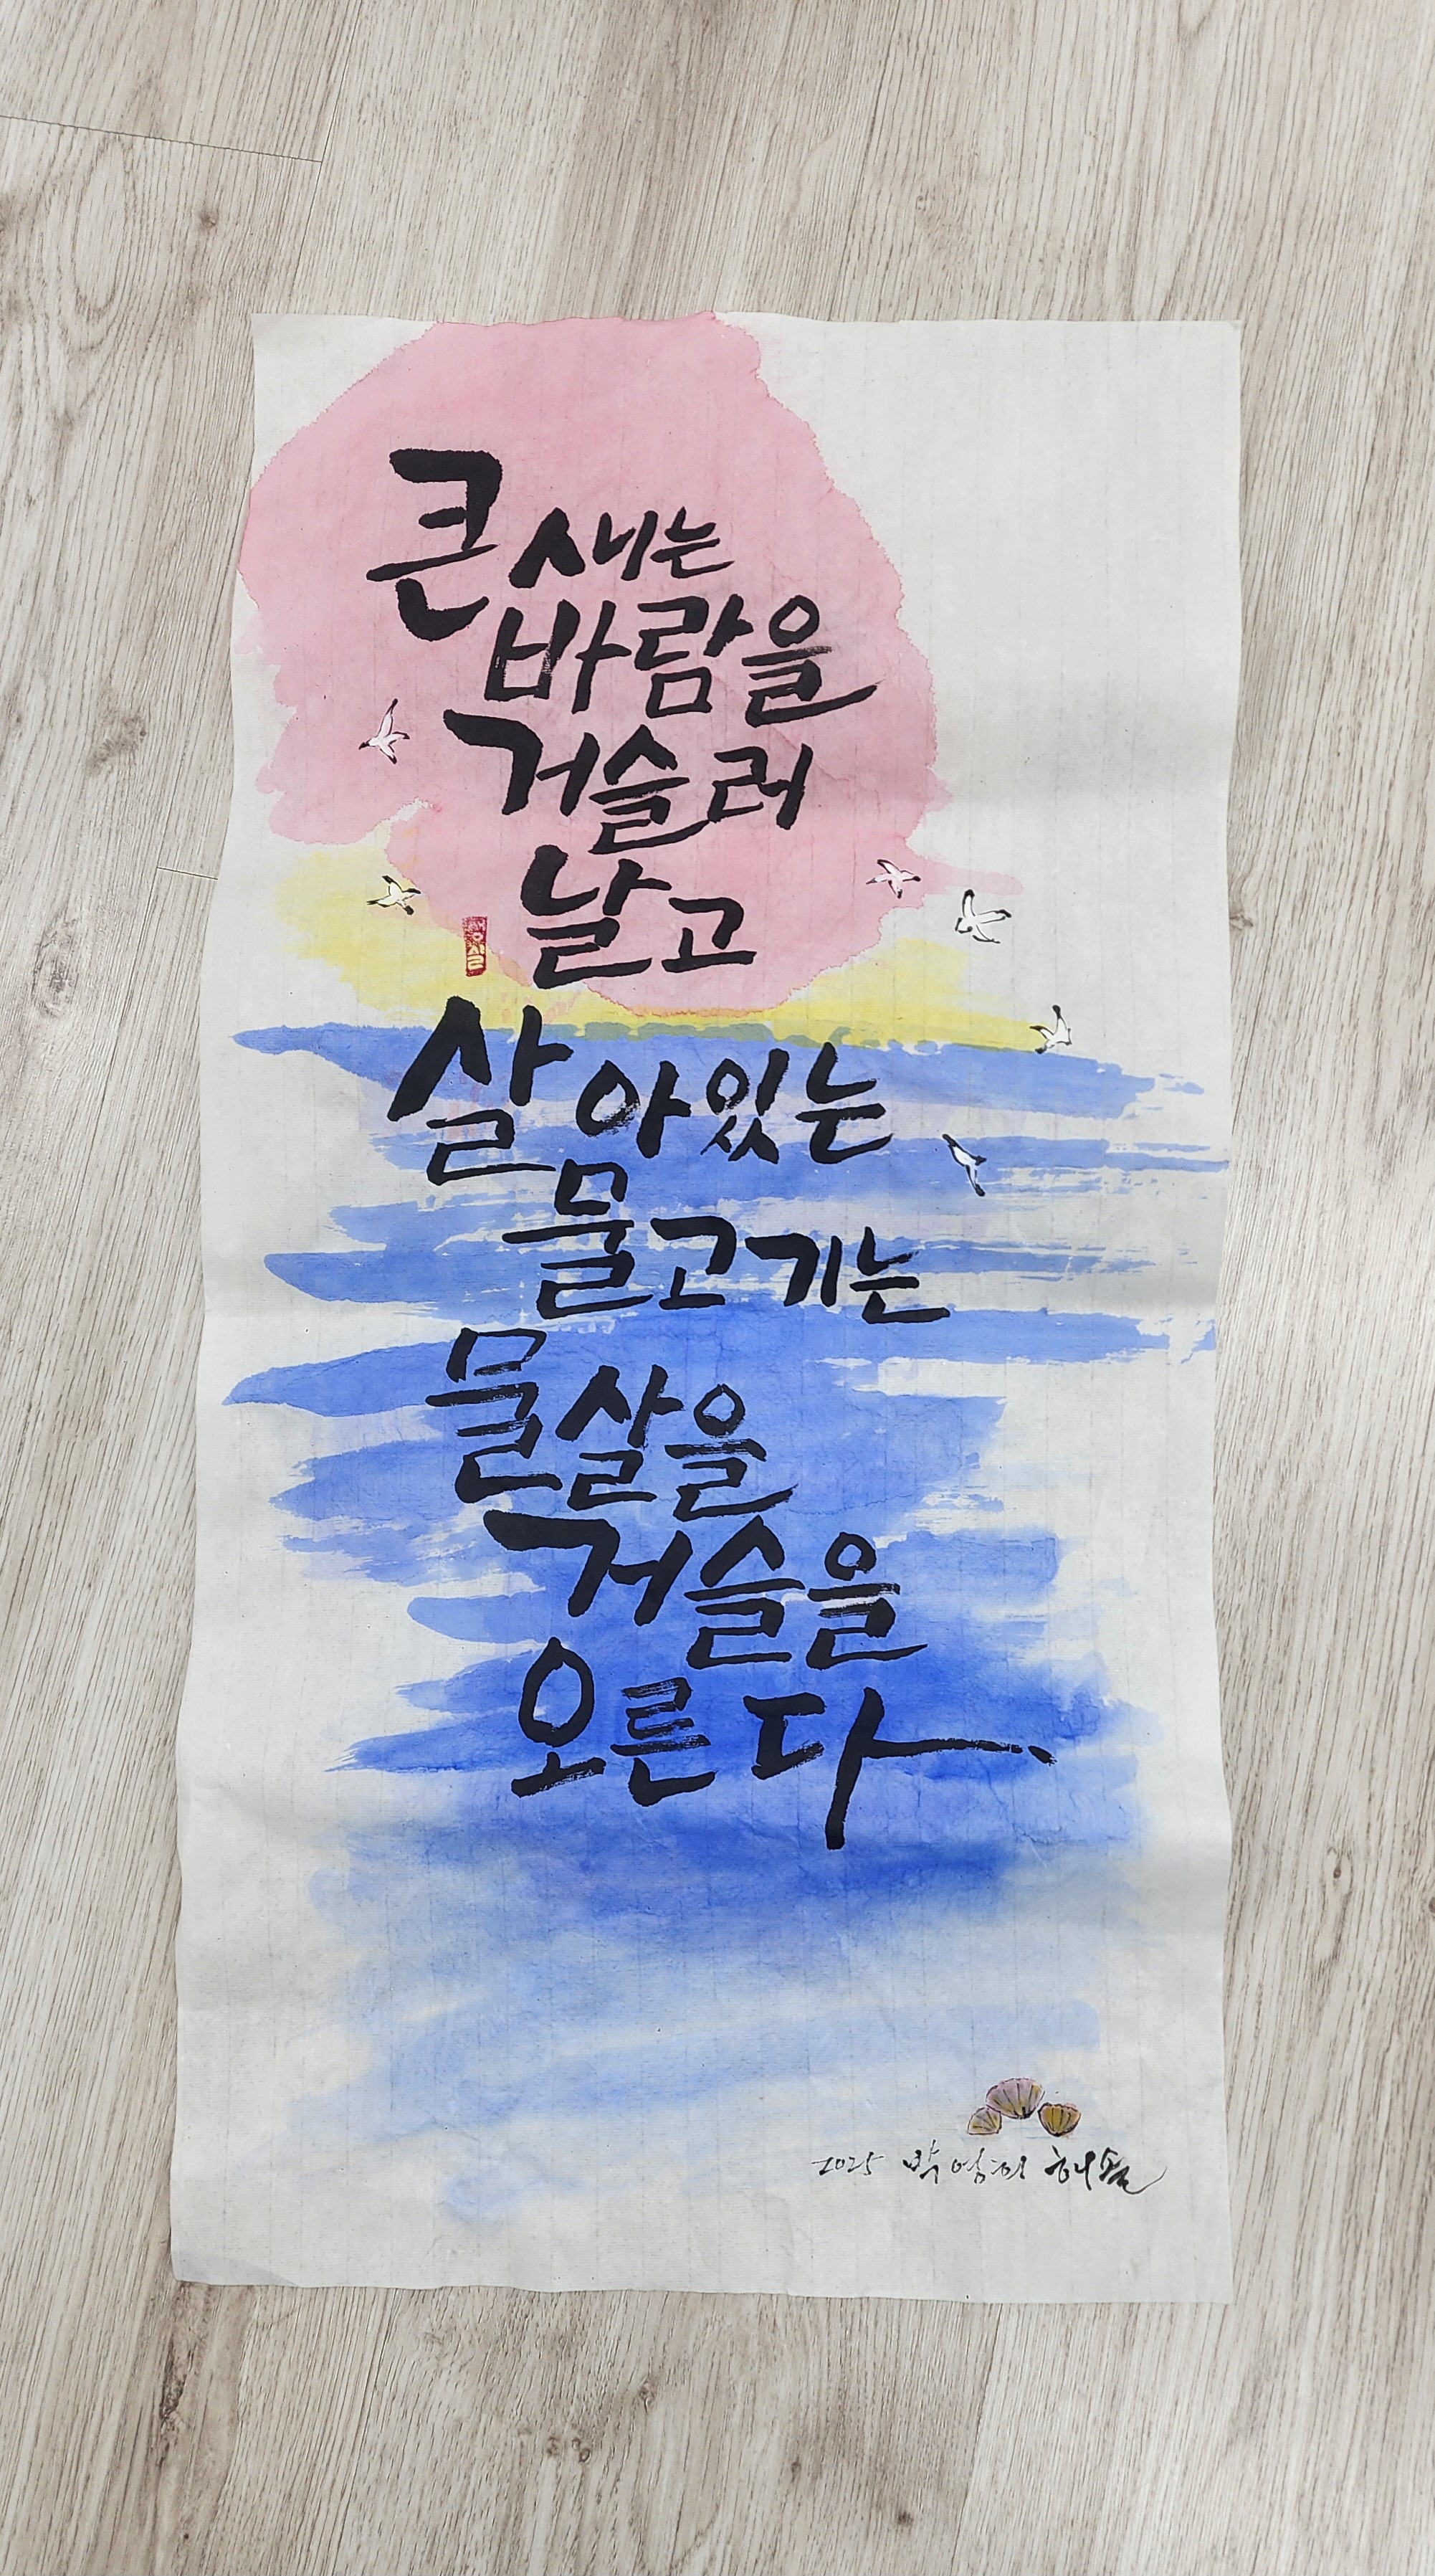 큰 새는
바람을
거슬러
날고
살아있는
물고기는
물살을
거슬을
오른다.
2025 박영희